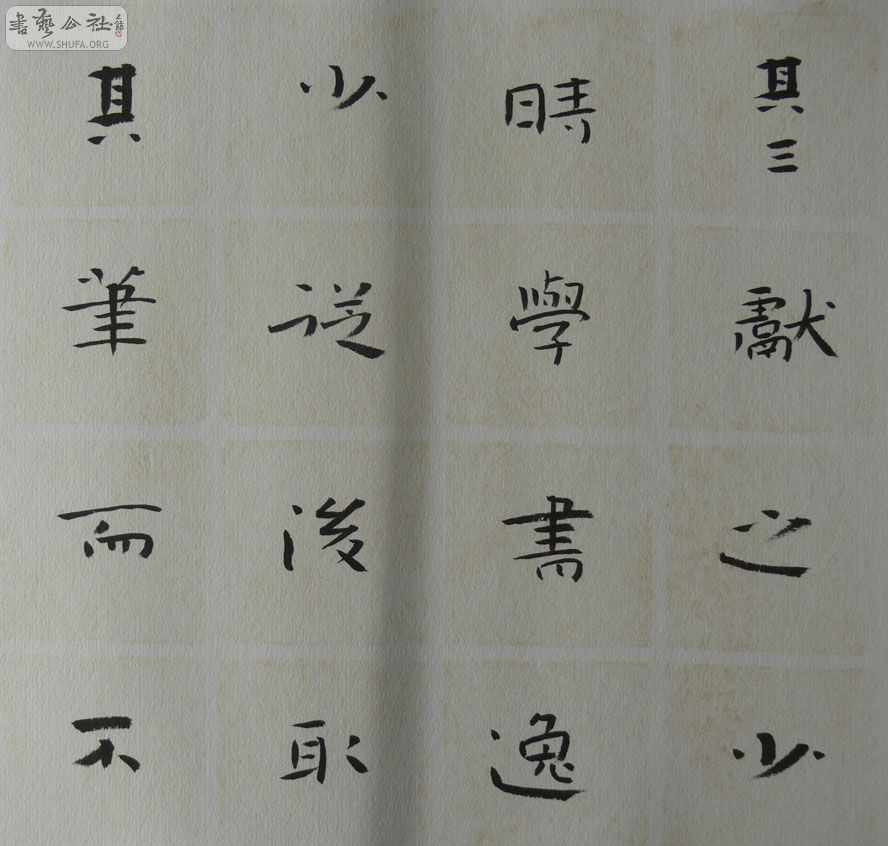 其三獻之少
時學書逸
少從後取
其筆而不
書藝公社
WWW.SHUFA.ORG